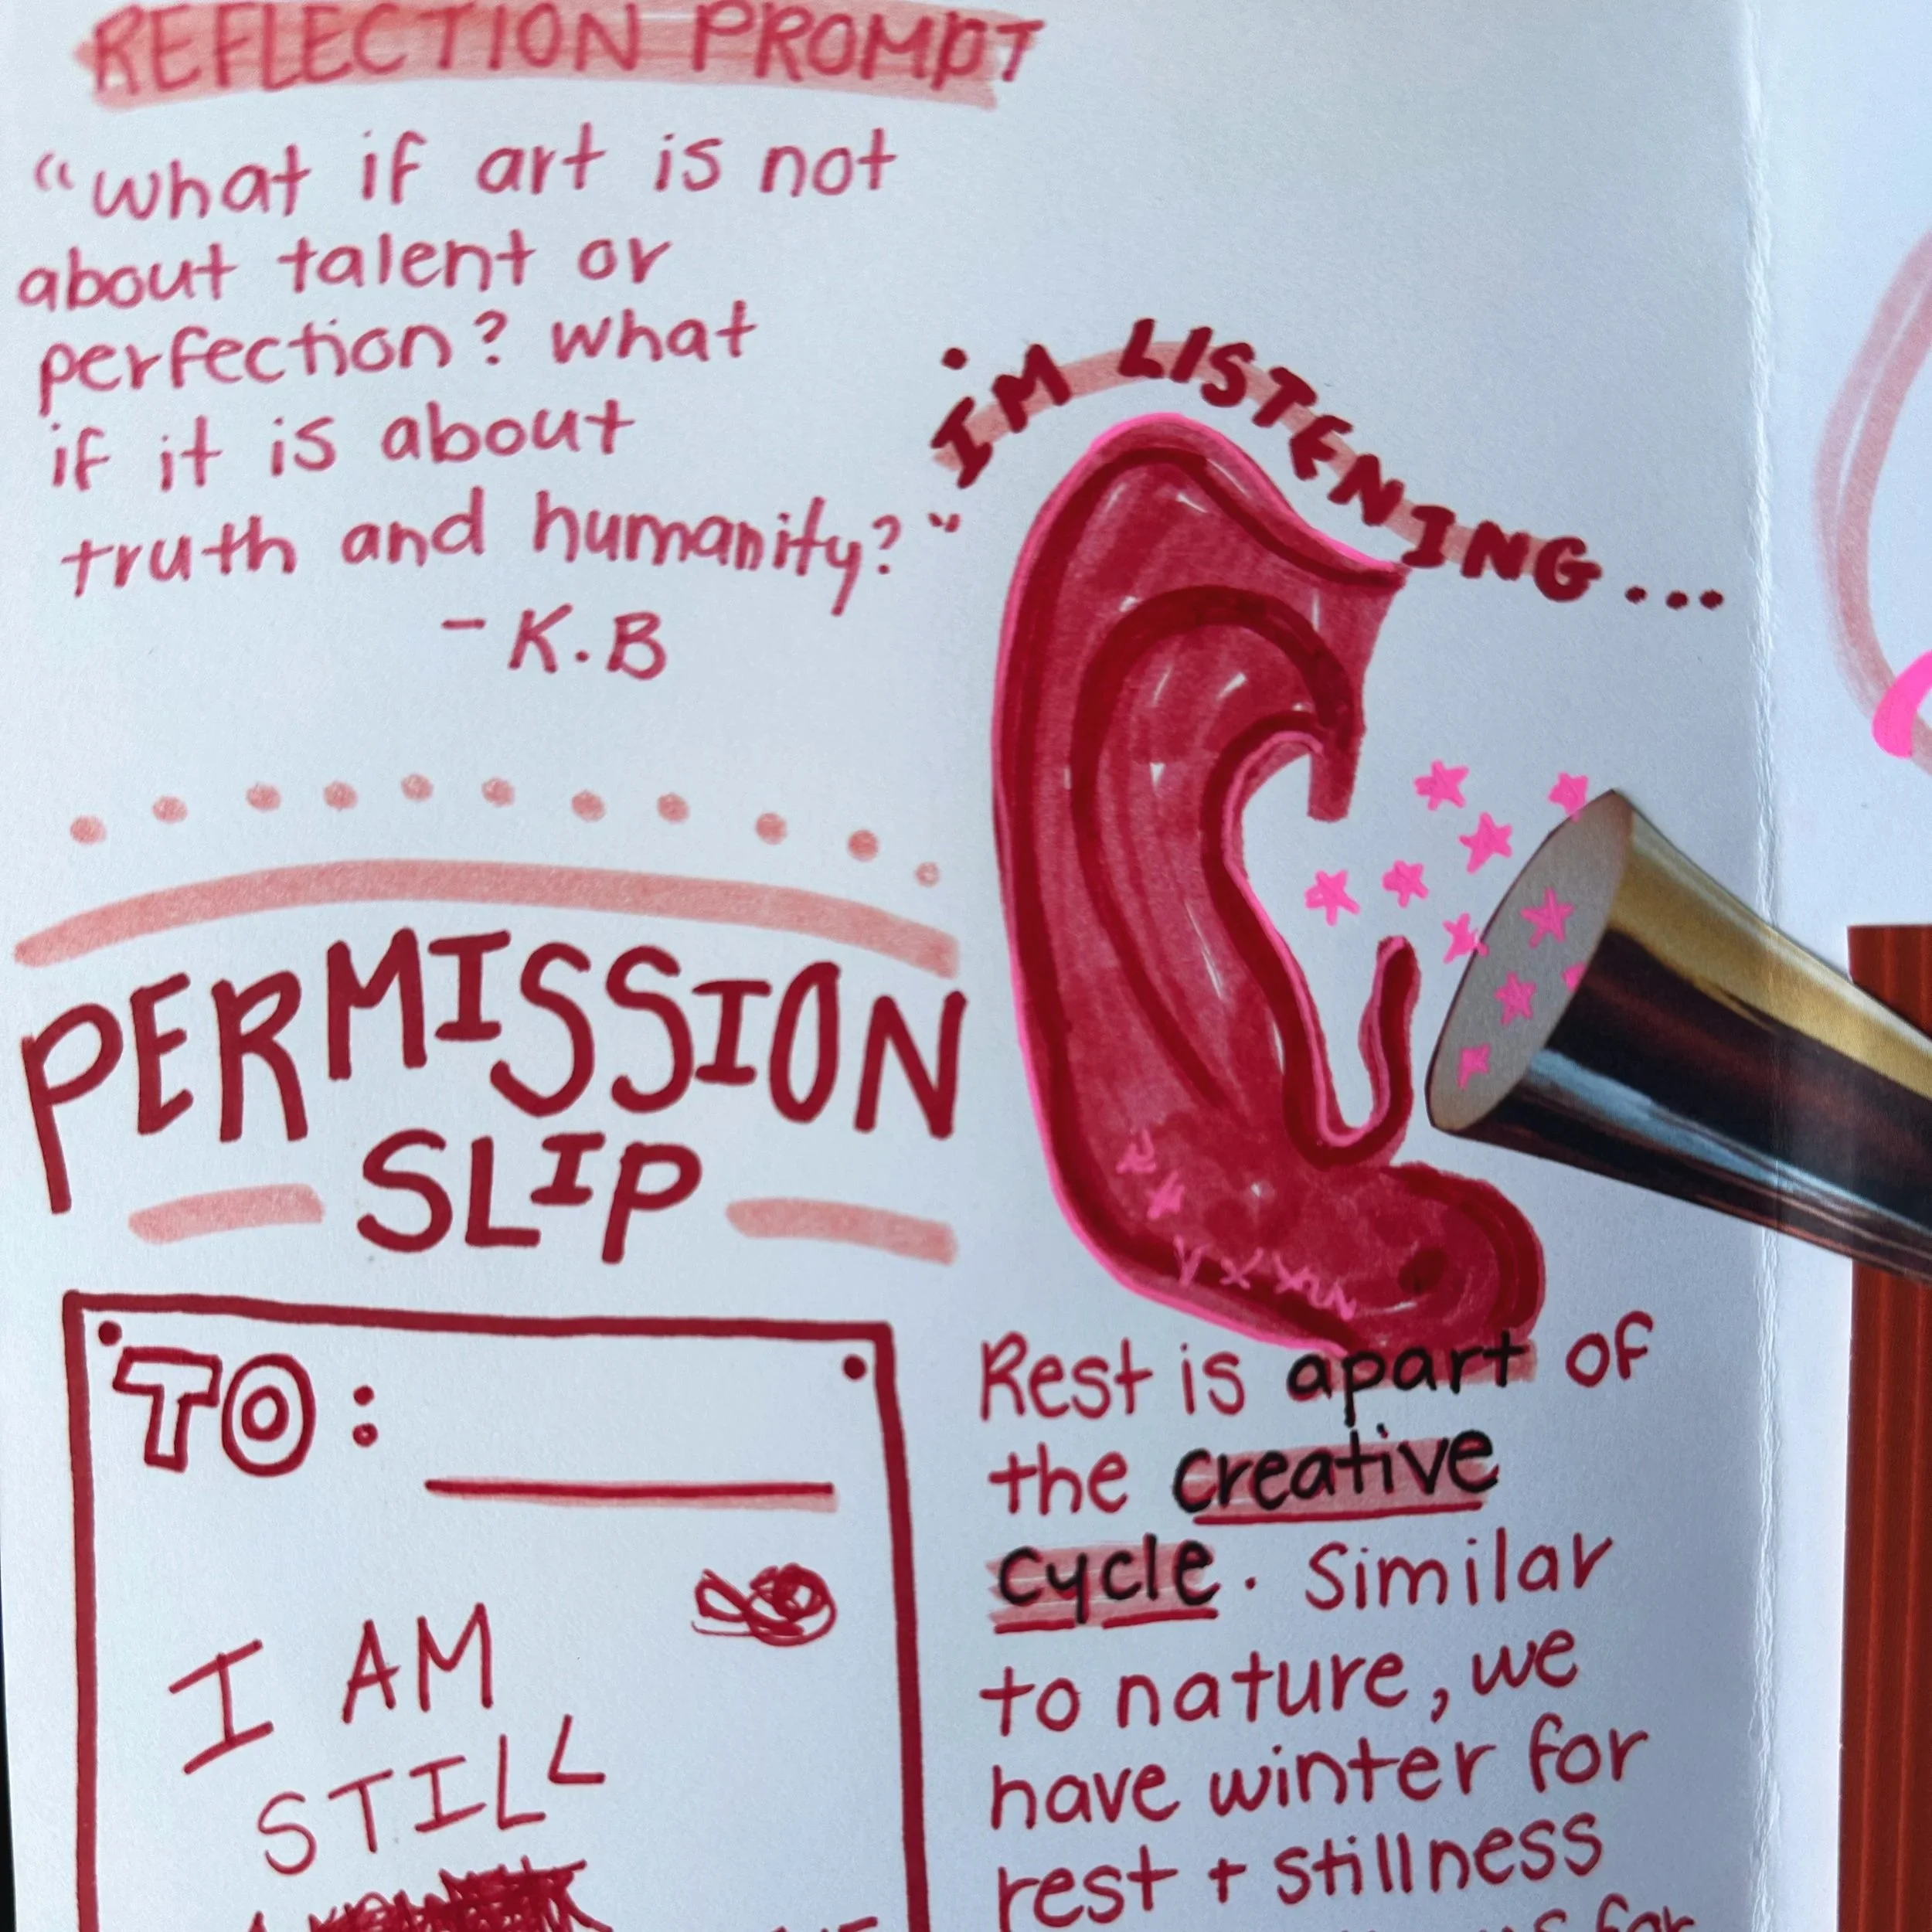 REFLECTION PROMPT
“what if art is not
about talent or
perfection? what
if it is about
truth and humanity?"
- K.B
I'M LISTENING...
PERMISSION
SLIP
TO:
I AM
STILL
Rest is apart of
the creative
cycle. Similar
to nature, we
have winter for
rest + stillness
for